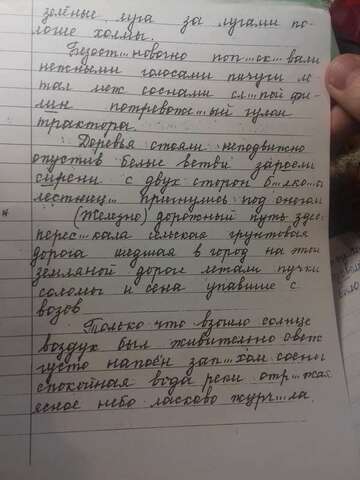 зелёные луга за лугами по-
логие холмы.
Безост...новочно поп...ск...вали
нежными голосами пичуги ле
тал меж соснами сл...пой фи-
лин потревож...ый гулом
трактора.
Деревья стояли неподвижно
опустив белые ветви заросли
сирени с двух сторон б...лко...ой
лестниц... пригнулись под окнами
(Железно) дорожный путь здесь
перес...кала сельская грунтовая
дорога шедшая в город на этой
земляной дороге летали пучки
соломы и сена упавшие с
возов
Только что взошло солнце
воздух был живительно свеж
густо напоён зап...хом сосны
спокойная вода реки отр...жая
ясное небо ласково журч...ла.